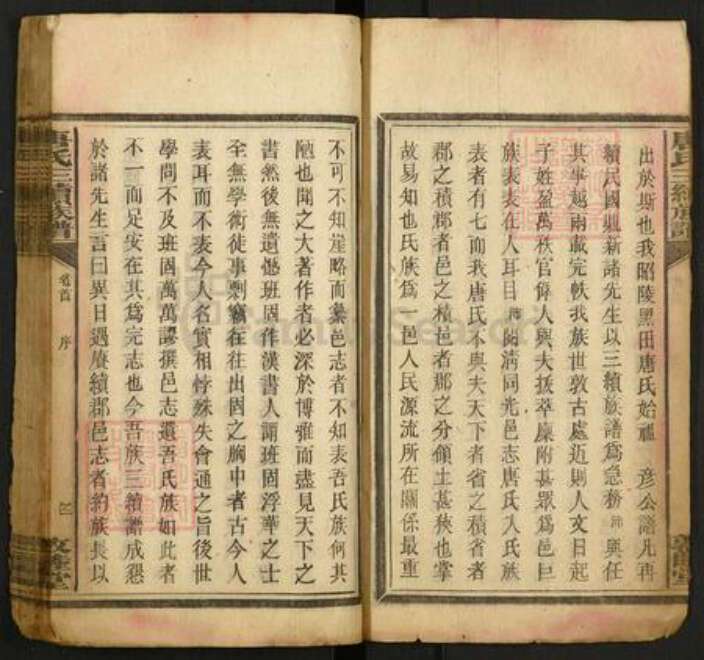 出於斯也我昭陵黑田唐氏始祖彥公譜凡再
續民國鼎新諸先生以三續族譜爲急務沛與任
其事越兩載完帙我族世敦古處近則人文日起
子姓盈萬秩官偉人與夫拔萃廉附甚眾爲邑巨
族表表在人耳目沛閱淸同光邑志唐氏入氏族
表者有七而我唐氏不與夫天下者省之積省者
郡之積郡者邑之積邑者郡之分領土甚狹也掌
故易知也氏族爲一邑人民源流所在關係最重
不可不知崖略而纂邑志者不知表吾氏族何其
陋也聞之大著作者必深於博雅而盡見天下之
書然後無遺憾班固作漢書人謂班固浮華之士
全無學術徒事剽竊往往出固之胸中者古今人
表耳而不表今人名實相悖殊失會通之旨後世
學問不及班固萬萬謬撰邑志遺吾氏族如此者
不一而足安在其爲完志也今吾族三續譜成懇
於諸先生言曰異日遇賡續郡邑志者約族長以
唐氏三續族譜
卷首
序
三
敦睦堂
FamilySearch